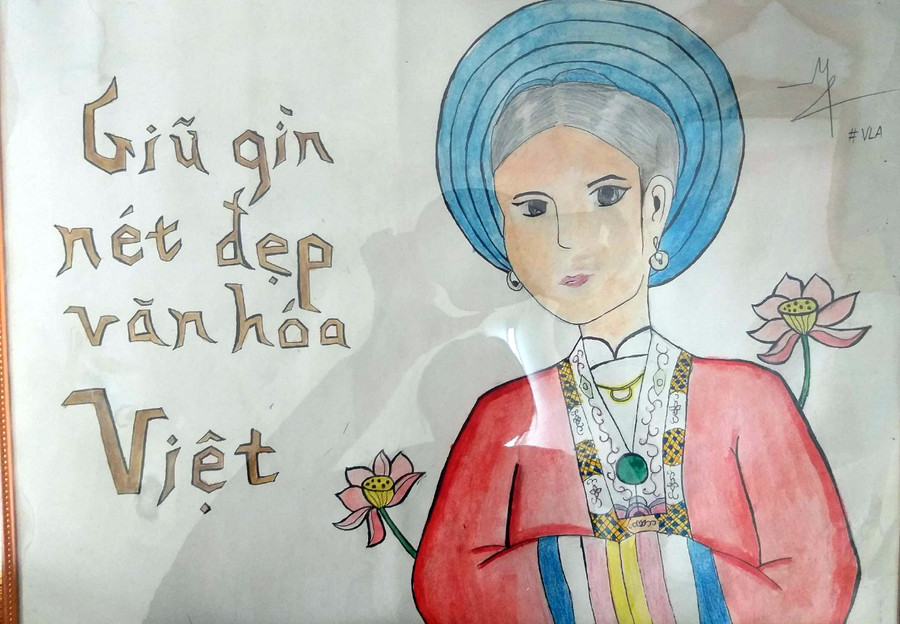 Giũ gìn
nét đẹp
văn hóa
Việt
#VLA